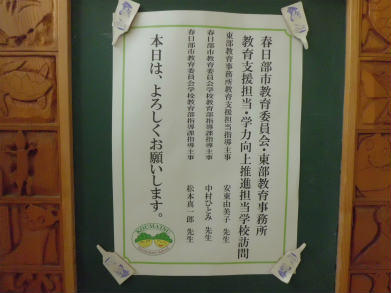 春日部市教育委員会・東部教育事務所
教育支援担当・学力向上推進担当学校訪問
東部教育事務所教育支援担当指導主事　安東由美子 先生
春日部市教育委員会学校教育部指導課指導主事　中村ひとみ 先生
春日部市教育委員会学校教育部指導課指導主事　松本真一郎 先生
本日は、よろしくお願いします。
KOUMATSU